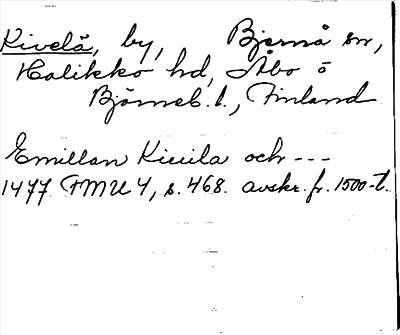 Kivelä, by, Bjernå sn,
Halikko hd, Åbo o
Björneb. l., Finland
Emillan Kiuila och ---
1477 FMU 4, s. 468. avskr. fr. 1500-t.